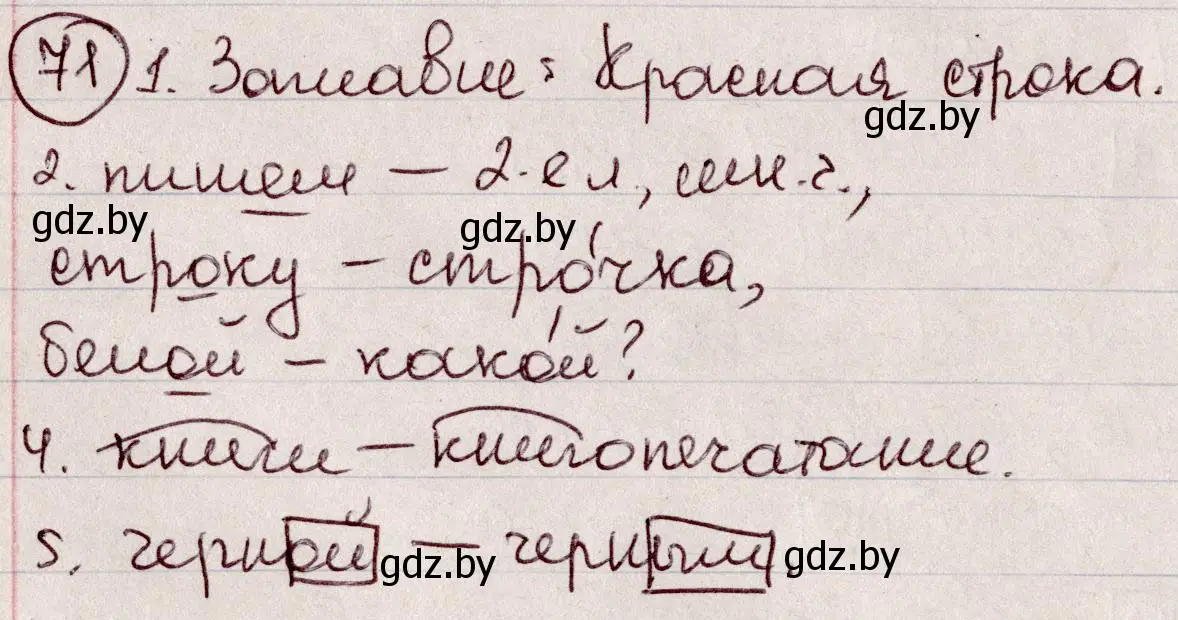 71 1. Заглавие: Красная строка.
gdz.by
2. пишем – 2-е л., мн.ч.,
gdz.by gdz.by
строку – стро́чка,
белой – како́й?
4. книги – книгопечатание.
5. черной – черным
gdz.by gdz.by